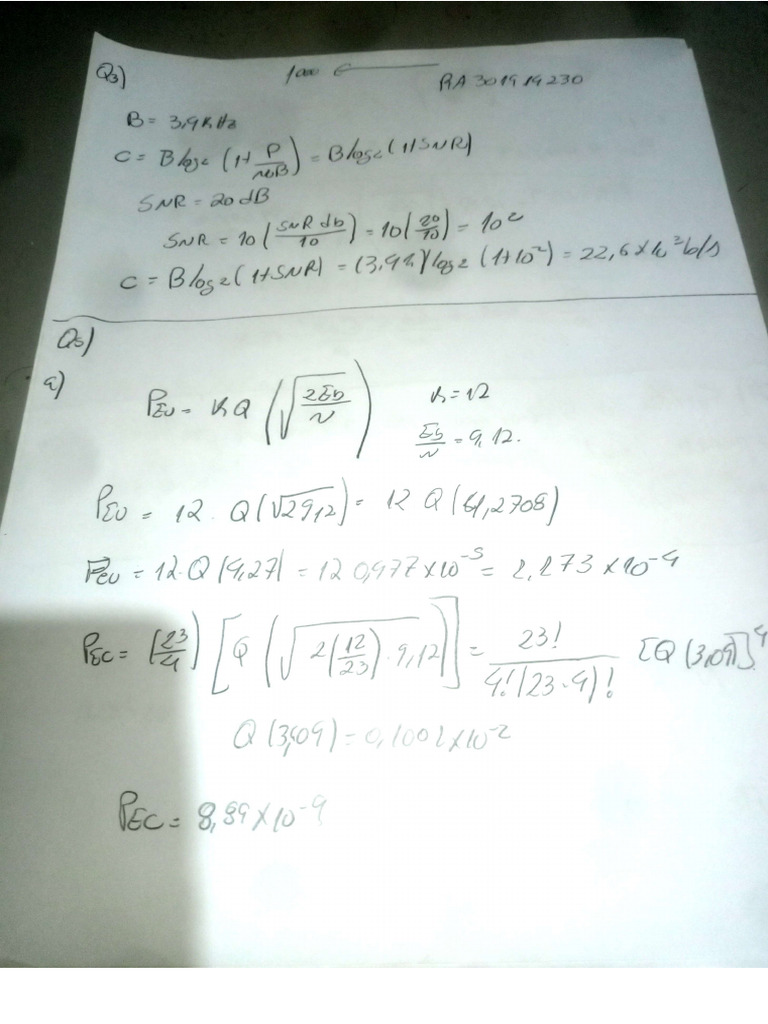 Q3) RA301919230
B = 3,4KHz
C = Blog2 (1+ P/noB) = Blog2 (1+SNR)
SNR = 20 dB
SNR = 10 (SNR db/10) = 10(20/10) = 10²
C = Blog2 (1+SNR) = (3,4K) log2 (1+10²) = 22,6 x 10³ b/s
Q5)
a)
PEU = KQ (√2Eb/N) K=12
Eb/N = 9,12.
PEU = 12 . Q(√2 9,12) = 12 Q (4,2708)
Peu = 12.Q (4,27) = 12 0,977 x 10⁻⁵ = 1,173 x 10⁻⁴
PEC = (23/4) [Q (√2(12/23).9,12)] = 23!/4!(23-4)! [Q(3,09)]⁴
Q (3,09) = 0,1001 x 10⁻²
PEC = 8,89 x 10⁻⁹